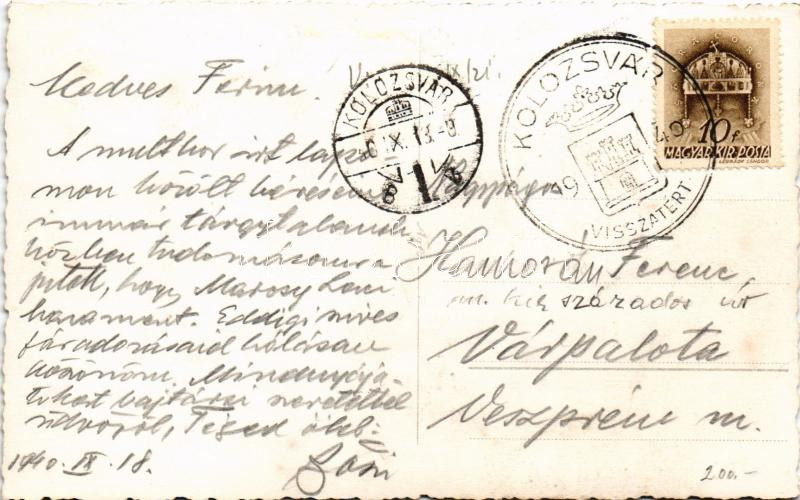 Kedves Ferim!
A multkor írt lapo-
mon közölt kérésem
immár tárgytalan
közben tudomásomra
jutott, hogy Marosy Laci
hazament. Eddigi szíves
fáradozásaid hálásan
köszönöm. Mindnyája-
tokat bajtársi szeretettel
üdvözöl, Téged ölel:
1940. IX. 18.
KOLOZSVÁR 1
KOLOZSVÁR
19 40
VISSZATÉRT
10f
MAGYAR KIR. POSTA
Nagyságos
Ferenc
m. kir. százados úr
Várpalota
Veszprém m.
200.-